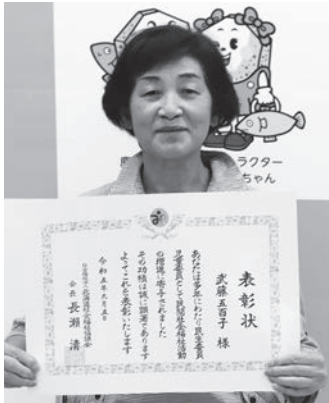 ラクター
ちゃん
表彰状
武藤五百子 様
あなたは多年にわたり民生委員
児童委員として民間社会福祉活動
の増進に寄与されました
その功績は誠に顕著であります
よってこれを表彰いたします
令和五年 月五日
社会福祉法人北海道社会福祉協議会
会長 長瀬 清